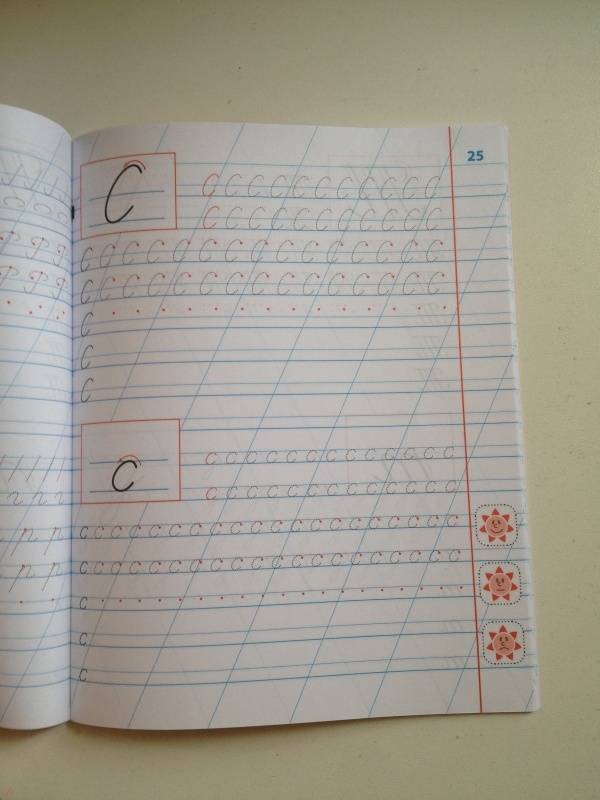 25
С
С С С С С С С С С С С
С С С С С С С С С С С
С С С С С С С С С С С С С С С
С С С С С С С С С С С С С С С
С
С
С
с
с с с с с с с с с с с с с
с с с с с с с с с с с с с
с с с с с с с с с с с с с с с с с с с с
с с с с с с с с с с с с с с с с с с с с
с
с
с